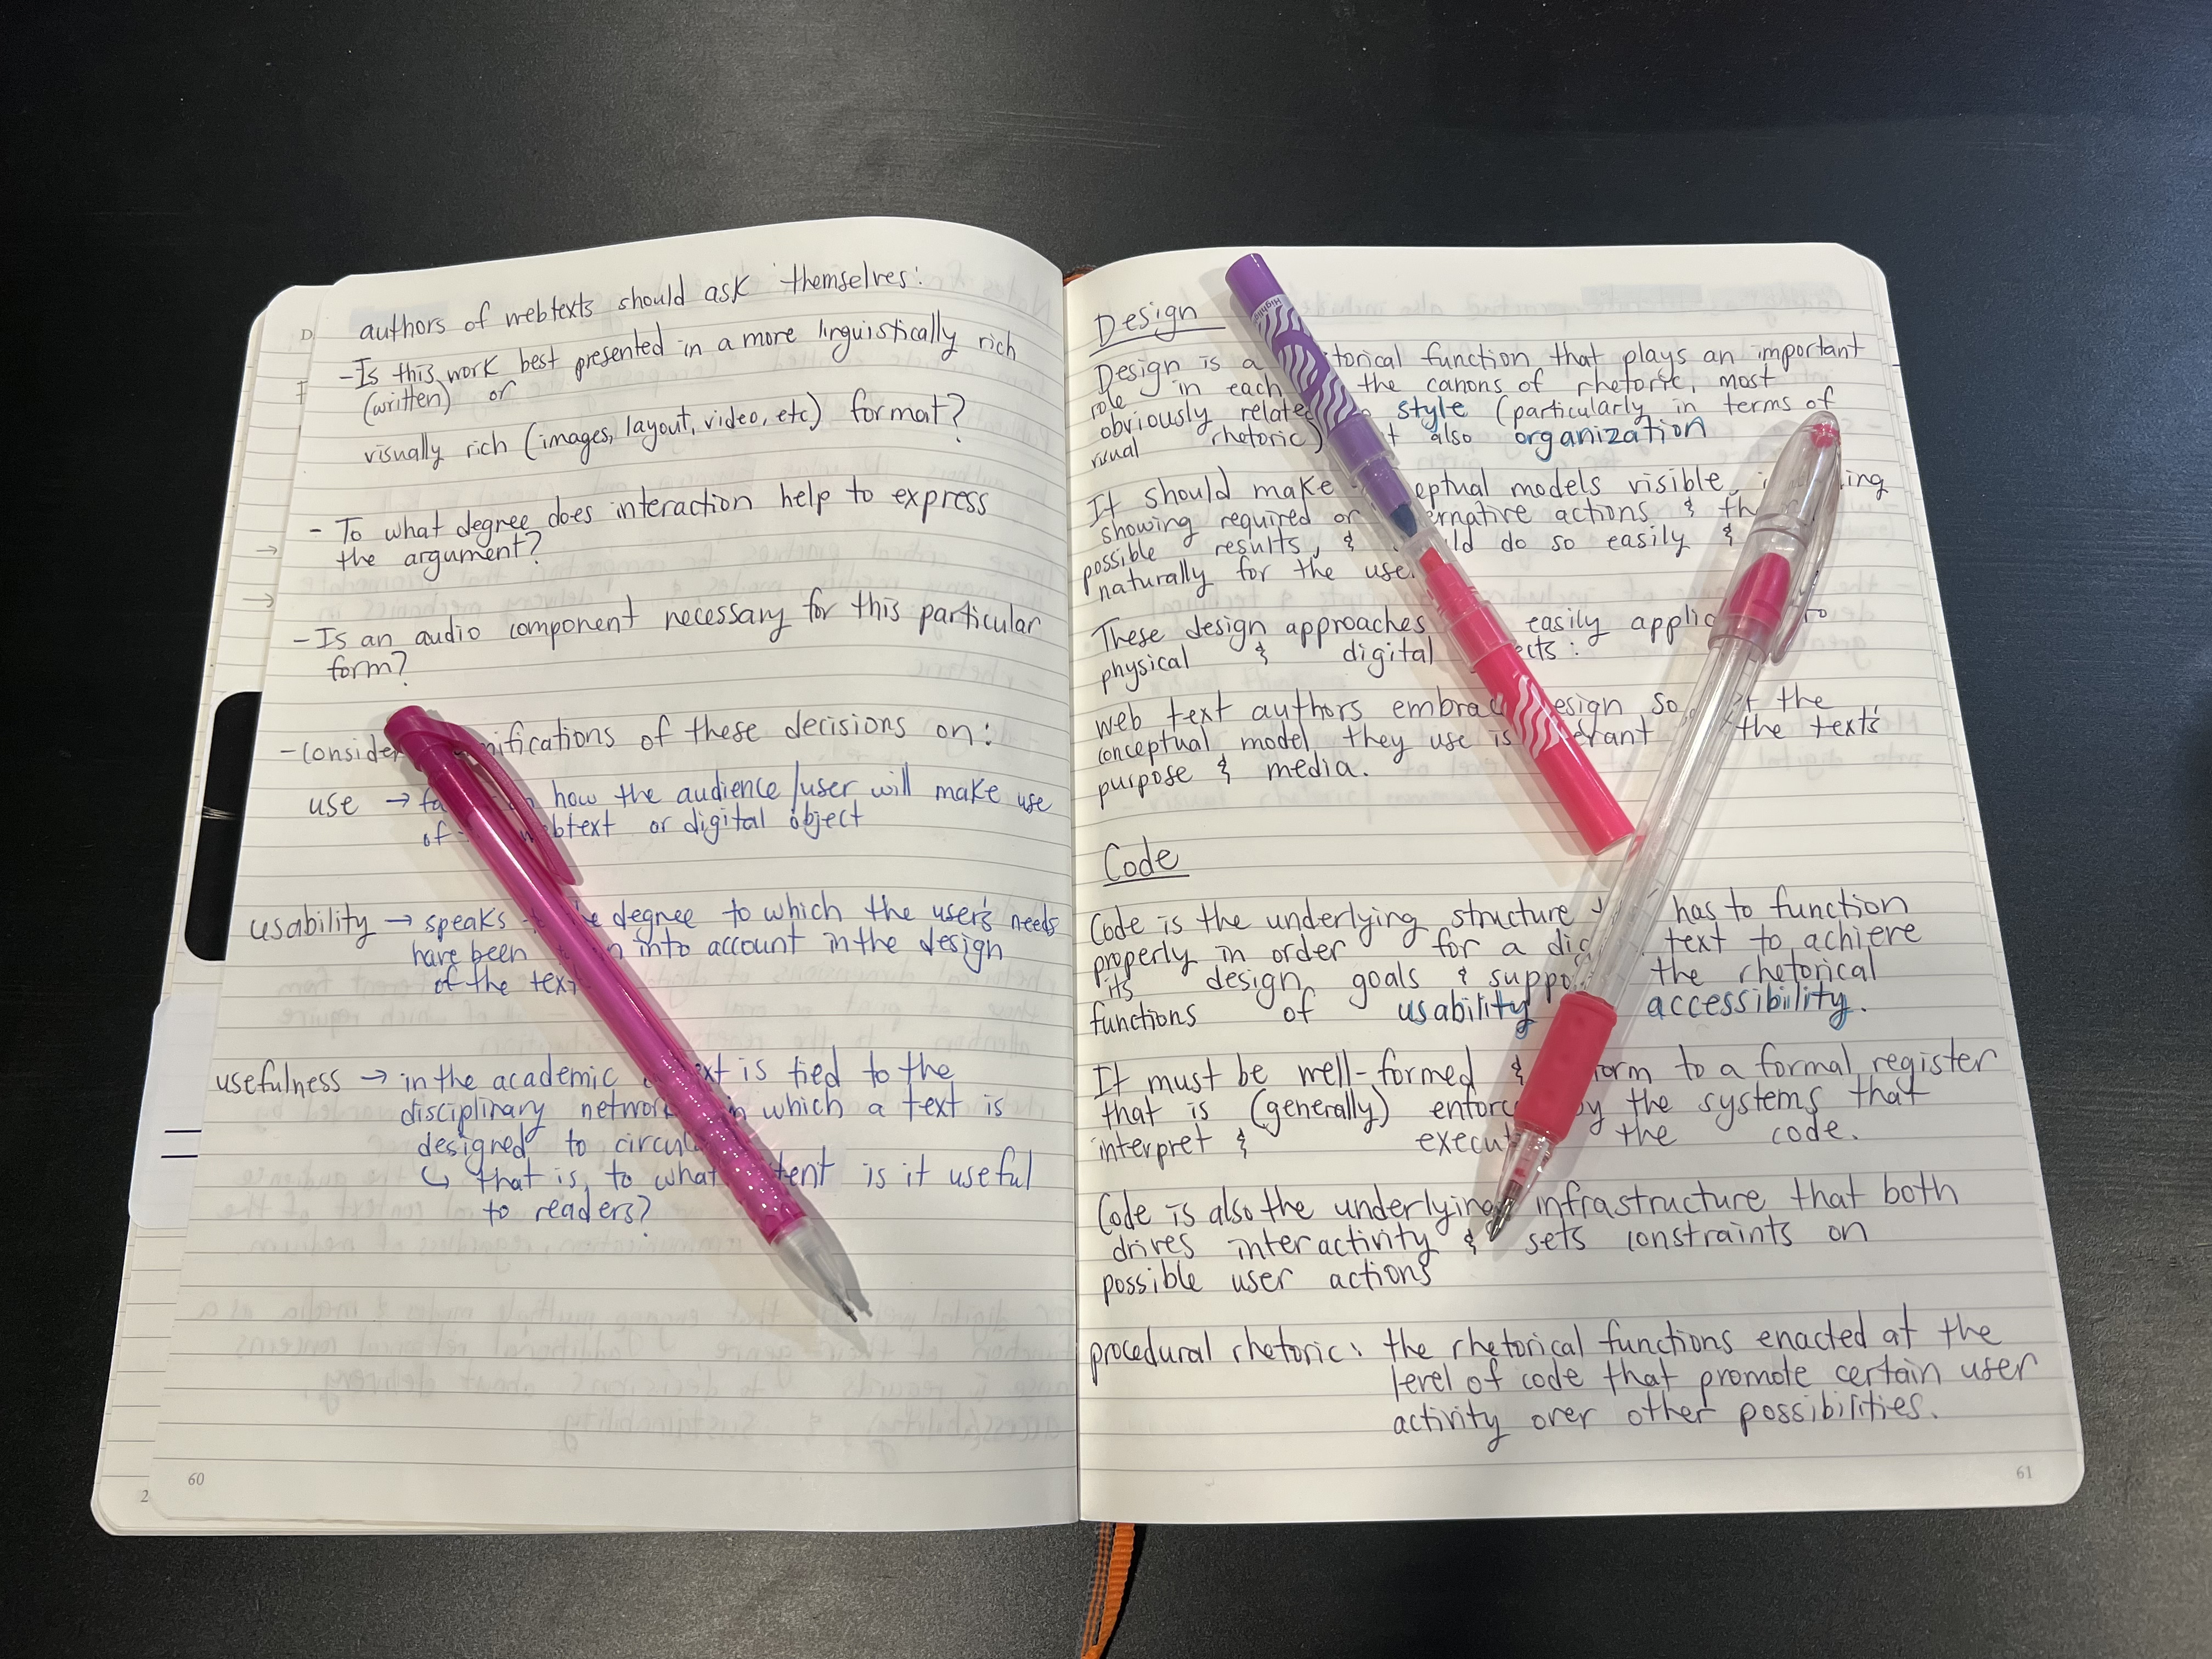 authors of webtexts should ask themselves:
-Is this work best presented in a more linguistically rich
(written) or
visually rich (images, layout, video, etc) format?
- To what degree does interaction help to express
the argument?
-Is an audio component necessary for this particular
form?
-consider of these decisions on:
use → how the audience/user will make use
of webtext or digital object
usability → speaks the degree to which the user's needs
have been into account in the design
of the text
usefulness → in the academic is tied to the
disciplinary network in which a text is
designed to
↳ that is, to what extent is it useful
to readers?
60
2
Design
Design is a function that plays an important
role in each the canons of rhetoric, most
obviously style (particularly in terms of
visual rhetoric) also organization
It should make models visible,
showing required or actions &
possible results, & do so easily &
naturally for the
These design approaches easily
physical & digital
web text authors design so the
conceptual model they use is the text's
purpose & media.
Code
Code is the underlying structure has to function
properly in order for a text to achieve
its design goals & the rhetorical
functions of usability accessibility.
It must be well-formed & to a formal register
that is (generally) by the systems that
interpret & the code.
Code is also the underlying infrastructure that both
drives interactivity & sets constraints on
possible user actions
procedural rhetoric: the rhetorical functions enacted at the
level of code that promote certain user
activity over other possibilities.
61